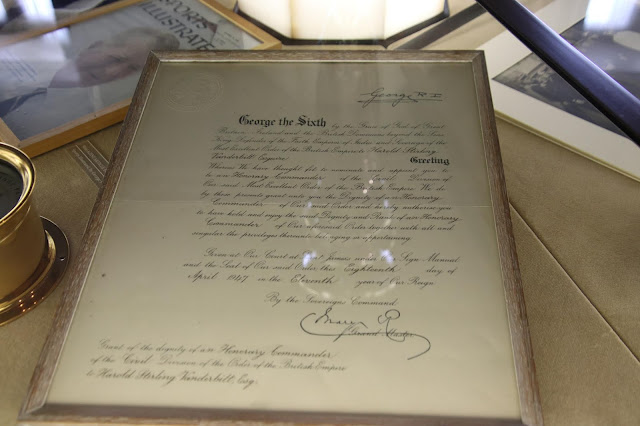 SPORTS
ILLUSTRATED
George R.I.
George the Sixth by the Grace of God of Great
Britain, Ireland and the British Dominions beyond the Seas
King, Defender of the Faith, Emperor of India and Sovereign of the
Most Excellent Order of the British Empire to Harold Sterling
Vanderbilt Esquire Greeting
Whereas We have thought fit to nominate and appoint you to
be an Honorary Commander of the Civil Division of
Our said Most Excellent Order of the British Empire We do
by these presents grant unto you the Dignity of an Honorary
Commander of Our said Order and hereby authorise you
to have hold and enjoy the said Dignity and Rank of an Honorary
Commander of Our aforesaid Order together with all and
singular the privileges thereunto belonging or appertaining
Given at Our Court at Saint James's under Our Sign Manual
and the Seal of Our said Order this Eighteenth day of
April 1947 in the Eleventh year of Our Reign
By the Sovereign's Command
Mary R
Grand Master
Grant of the dignity of an Honorary Commander
of the Civil Division of the Order of the British Empire
to Harold Sterling Vanderbilt, Esq.